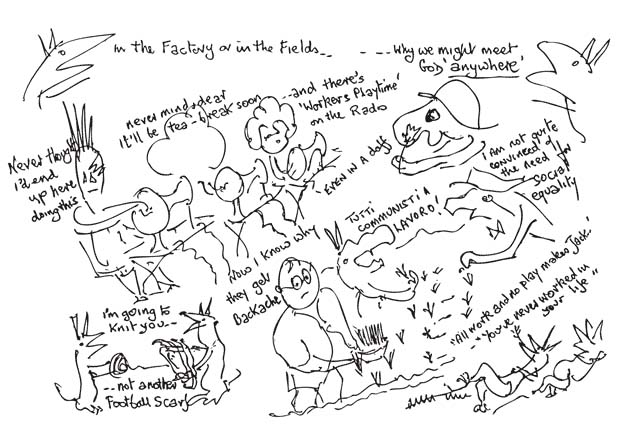 in the Factory or in the Fields -- --- why we might meet
GOD 'anywhere'
never mind, dear
it'll be tea-break soon
---and there's
'Workers Playtime'
on the Rado
EVEN IN A
Never thought
I'd end
up here
doing this
'I am not quite
convinced of
the need for
social
equality
TUTTI
COMMUNISTI A
LAVORO!
NOW I KNOW WHY
they get
Backache
i'm going to
knit you --
-- not another
Football Scarf
"All work and no play makes Jack.'
-- "You've never worked in
your life"